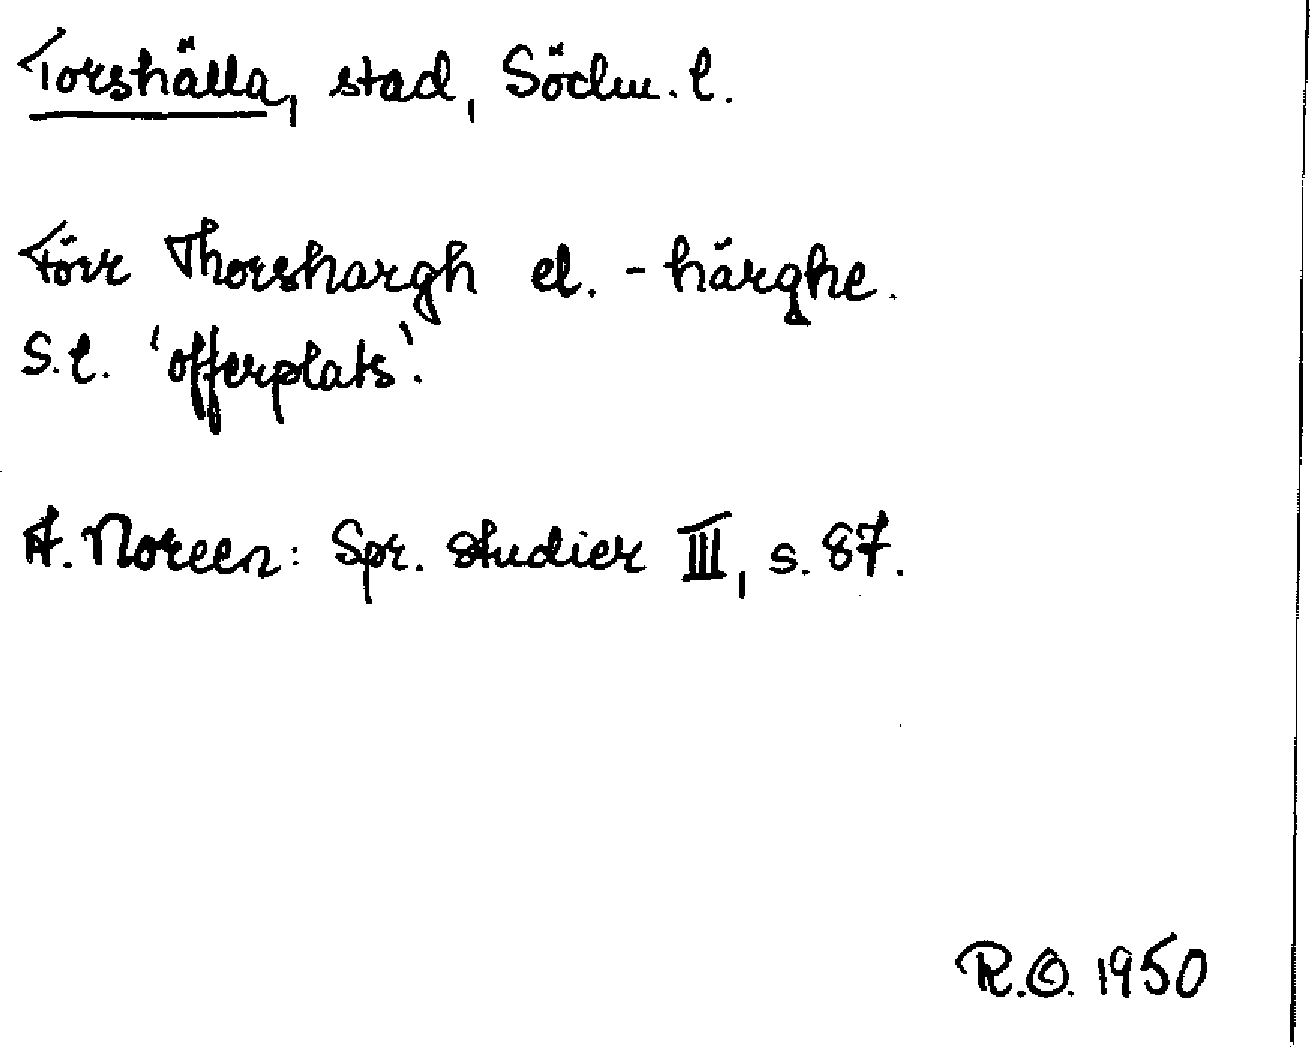 Torshälla, stad, Södm. l.
Förr Thorshargh el. -härghe.
S.l. 'offerplats'.
A. Noreen: Spr. studier III, s. 87.
R.O. 1950